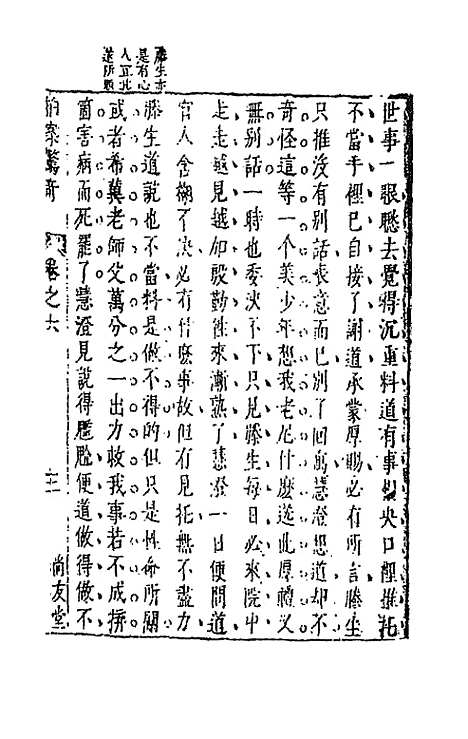 滕生亦
是有心
人宜其
遂所願
世事一眼瞧去覺得沉重料道有事相央口裡推托
不當手裡已自接了謝道承蒙厚賜必有所言滕生
只推没有別話表意而已別了回寓慧澄想道却不
奇怪這等一个美少年想我老尼什麽送此厚禮又
無别話一時也委決不下只見滕生每日必來院中
走走越見越加殷勤徃來漸熟了慧澄一日便問道
官人含糊了决必有什麽事故但有見托無不盡力
滕生道說也不當料是做不得的但只是性命所關
或者希冀老師父萬分之一出力救我事若不成拚
箇害病而死罷了慧澄見說得尷尬便道做得做不
拍案驚奇 卷之六 尚友堂